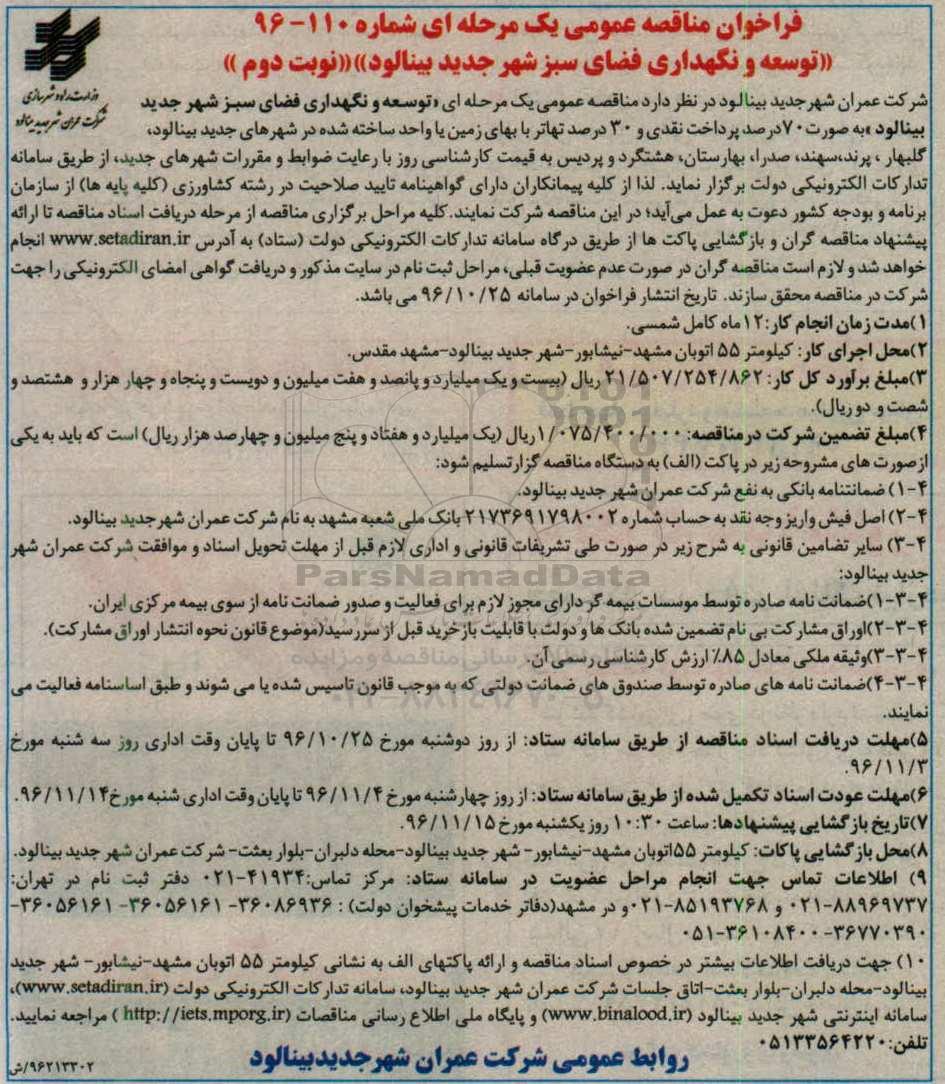 فراخوان مناقصه عمومی یک مرحله ای شماره ۱۱۰- ۹۶
«توسعه و نگهداری فضای سبز شهر جدید بینالود»«نوبت دوم»
وزارت راه و شهرسازی
شرکت عمران شهر جدید بینالود
شرکت عمران شهرجدید بینالود در نظر دارد مناقصه عمومی یک مرحله ای «توسعه و نگهداری فضای سبز شهر جدید
بینالود »به صورت۷۰درصد پرداخت نقدی و ۳۰ درصد تهاتر با بهای زمین یا واحد ساخته شده در شهرهای جدید بینالود،
گلبهار ، پرند،سهند، صدرا، بهارستان، هشتگرد و پردیس به قیمت کارشناسی روز با رعایت ضوابط و مقررات شهرهای جدید، از طریق سامانه
تدارکات الکترونیکی دولت برگزار نماید. لذا از کلیه پیمانکاران دارای گواهینامه تایید صلاحیت در رشته کشاورزی (کلیه پایه ها) از سازمان
برنامه و بودجه کشور دعوت به عمل می‌آید؛ در این مناقصه شرکت نمایند.کلیه مراحل برگزاری مناقصه از مرحله دریافت اسناد مناقصه تا ارائه
پیشنهاد مناقصه گران و بازگشایی پاکت ها از طریق درگاه سامانه تدارکات الکترونیکی دولت (ستاد) به آدرس www.setadiran.ir انجام
خواهد شد و لازم است مناقصه گران در صورت عدم عضویت قبلی، مراحل ثبت نام در سایت مذکور و دریافت گواهی امضای الکترونیکی را جهت
شرکت در مناقصه محقق سازند. تاریخ انتشار فراخوان در سامانه ۹۶/۱۰/۲۵ می باشد.
۱)مدت زمان انجام کار:۱۲ماه کامل شمسی.
۲)محل اجرای کار: کیلومتر ۵۵ اتوبان مشهد-نیشابور-شهر جدید بینالود-مشهد مقدس.
۳)مبلغ برآورد کل کار: ۲۱/۵۰۷/۲۵۴/۸۶۲ ریال (بیست و یک میلیارد و پانصد و هفت میلیون و دویست و پنجاه و چهار هزار و هشتصد و
شصت و دو ریال).
۴)مبلغ تضمین شرکت درمناقصه: ۱/۰۷۵/۴۰۰/۰۰۰ریال (یک میلیارد و هفتاد و پنج میلیون و چهارصد هزار ریال) است که باید به یکی
از صورت های مشروحه زیر در پاکت (الف) به دستگاه مناقصه گزار تسلیم شود:
۴-۱) ضمانتنامه بانکی به نفع شرکت عمران شهر جدید بینالود.
۴-۲) اصل فیش واریز وجه نقد به حساب شماره ۲۱۷۳۶۹۱۷۹۸۰۰۲ بانک ملی شعبه مشهد به نام شرکت عمران شهرجدید بینالود.
۴-۳) سایر تضامین قانونی به شرح زیر در صورت طی تشریفات قانونی و اداری لازم قبل از مهلت تحویل اسناد و موافقت شرکت عمران شهر
جدید بینالود:
ParsNamadData
۴-۳-۱)ضمانت نامه صادره توسط موسسات بیمه گر دارای مجوز لازم برای فعالیت و صدور ضمانت نامه از سوی بیمه مرکزی ایران.
۴-۳-۲)اوراق مشارکت بی نام تضمین شده بانک ها و دولت با قابلیت بازخرید قبل از سررسید(موضوع قانون نحوه انتشار اوراق مشارکت).
۴-۳-۳)وثیقه ملکی معادل ۸۵٪ ارزش کارشناسی رسمی آن.
۴-۳-۴)ضمانت نامه های صادره توسط صندوق های ضمانت دولتی که به موجب قانون تاسیس شده یا می شوند و طبق اساسنامه فعالیت می
نمایند.
۵)مهلت دریافت اسناد مناقصه از طریق سامانه ستاد: از روز دوشنبه مورخ ۹۶/۱۰/۲۵ تا پایان وقت اداری روز سه شنبه مورخ
۹۶/۱۱/۳.
۶)مهلت عودت اسناد تکمیل شده از طریق سامانه ستاد: از روز چهارشنبه مورخ ۹۶/۱۱/۴ تا پایان وقت اداری شنبه مورخ۹۶/۱۱/۱۴.
۷)تاریخ بازگشایی پیشنهادها: ساعت ۱۰:۳۰ روز یکشنبه مورخ ۹۶/۱۱/۱۵.
۸)محل بازگشایی پاکات: کیلومتر ۵۵اتوبان مشهد-نیشابور- شهر جدید بینالود-محله دلبران-بلوار بعثت- شرکت عمران شهر جدید بینالود.
۹) اطلاعات تماس جهت انجام مراحل عضویت در سامانه ستاد: مرکز تماس:۴۱۹۳۴-۰۲۱ دفتر ثبت نام در تهران:
۸۸۹۶۹۷۳۷-۰۲۱ و ۸۵۱۹۳۷۶۸-۰۲۱و در مشهد(دفاتر خدمات پیشخوان دولت) : ۳۶۰۸۶۹۳۶- ۳۶۰۵۶۱۶۱ -۳۶۰۵۶۱۶۱-
۳۶۷۷۰۳۹۰- ۳۶۱۰۸۴۰۰-۰۵۱
۱۰) جهت دریافت اطلاعات بیشتر در خصوص اسناد مناقصه و ارائه پاکتهای الف به نشانی کیلومتر ۵۵ اتوبان مشهد-نیشابور- شهر جدید
بینالود-محله دلبران-بلوار بعثت-اتاق جلسات شرکت عمران شهر جدید بینالود، سامانه تدارکات الکترونیکی دولت (www.setadiran.ir)،
سامانه اینترنتی شهر جدید بینالود (www.binalood.ir) و پایگاه ملی اطلاع رسانی مناقصات (http://iets.mporg.ir ) مراجعه نمایید.
تلفن:۰۵۱۳۳۵۶۴۲۲۰
روابط عمومی شرکت عمران شهرجدیدبینالود
۹۶۲۱۳۳۰۲/ش